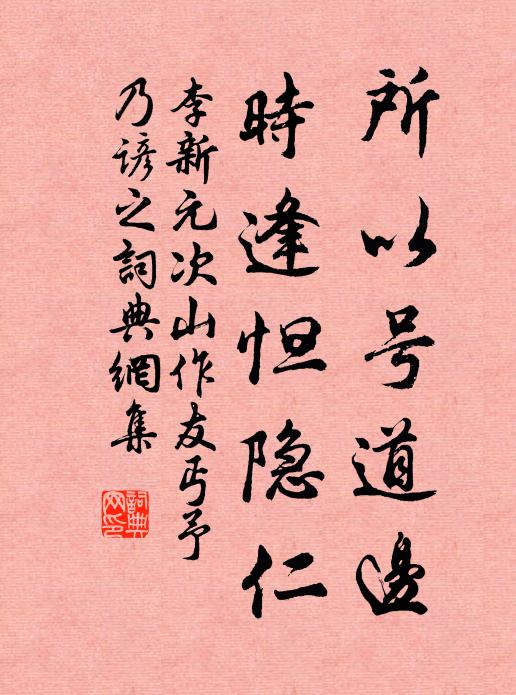 所以号道邊
時逢怛隐仁
李新元次山作友丐予
乃諺之詞典網集
詞典网印